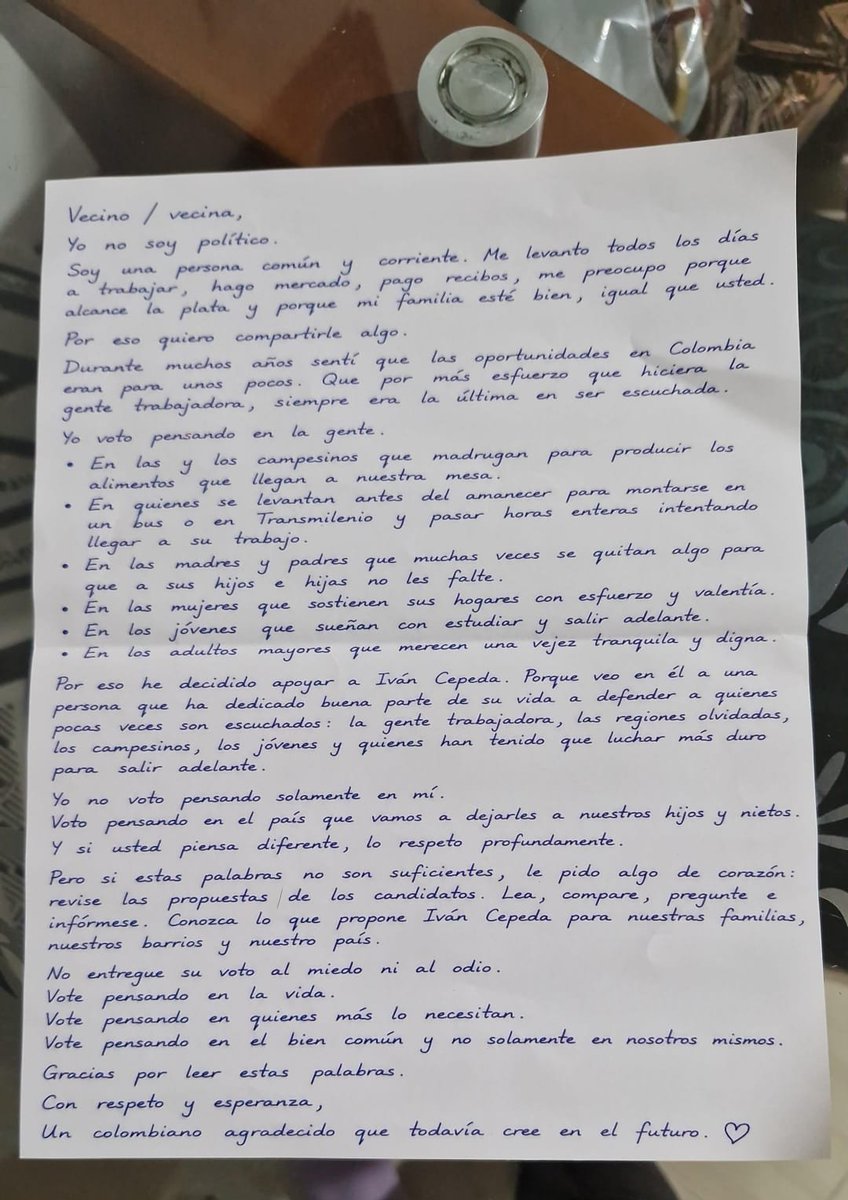 Vecino / vecina,
Yo no soy político.
Soy una persona común y corriente. Me levanto todos los días
a trabajar, hago mercado, pago recibos, me preocupo porque
alcance la plata y porque mi familia esté bien, igual que usted.
Por eso quiero compartirle algo.
Durante muchos años sentí que las oportunidades en Colombia
eran para unos pocos. Que por más esfuerzo que hiciera la
gente trabajadora, siempre era la última en ser escuchada.
Yo voto pensando en la gente.
• En las y los campesinos que madrugan para producir los
alimentos que llegan a nuestra mesa.
• En quienes se levantan antes del amanecer para montarse en
un bus o en Transmilenio y pasar horas enteras intentando
llegar a su trabajo.
• En las madres y padres que muchas veces se quitan algo para
que a sus hijos e hijas no les falte.
• En las mujeres que sostienen sus hogares con esfuerzo y valentía.
• En los jóvenes que sueñan con estudiar y salir adelante.
• En los adultos mayores que merecen una vejez tranquila y digna.
Por eso he decidido apoyar a Iván Cepeda. Porque veo en él a una
persona que ha dedicado buena parte de su vida a defender a quienes
pocas veces son escuchados: la gente trabajadora, las regiones olvidadas,
los campesinos, los jóvenes y quienes han tenido que luchar más duro
para salir adelante.
Yo no voto pensando solamente en mí.
Voto pensando en el país que vamos a dejarles a nuestros hijos y nietos.
Y si usted piensa diferente, lo respeto profundamente.
Pero si estas palabras no son suficientes, le pido algo de corazón:
revise las propuestas de los candidatos. Lea, compare, pregunte e
infórmese. Conozca lo que propone Iván Cepeda para nuestras familias,
nuestros barrios y nuestro país.
No entregue su voto al miedo ni al odio.
Vote pensando en la vida.
Vote pensando en quienes más lo necesitan.
Vote pensando en el bien común y no solamente en nosotros mismos.
Gracias por leer estas palabras.
Con respeto y esperanza,
Un colombiano agradecido que todavía cree en el futuro. ♡